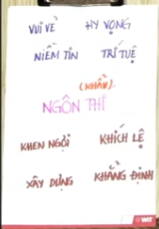 VUI VẺ HY VỌNG
NIỀM TIN TRÍ TUỆ
(KHẨU).
NGÔN THÍ
KHEN NGỢI KHÍCH LỆ
XÂY DỰNG KHẲNG ĐỊNH